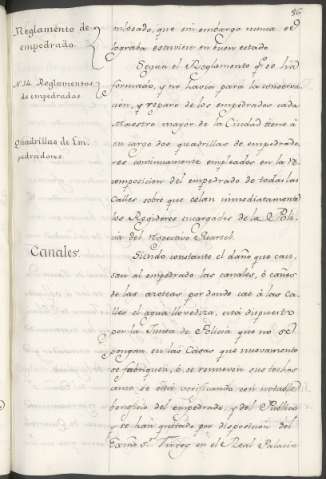 86
Reglamento de
empedrado.
N. 14. Reglamentos
de empedrados
Quadrillas de Em-
pedradores
Canales.
mbrado, que sin embargo nunca se
lograba estuviese en buen estado
Segun el Reglamento qe. se há
formado, y no havia para la conserva-
cion, y reparo de los empedrados cada
Maestro mayor de la Ciudad tiene á
su cargo dos quadrillas de empedrado-
res continuamente empleados en la re-
composicion del empedrado de todas las
Calles sobre que celan inmediatamente
los Regidores encargados de la Poli-
cia del respectivo Quartel.
Siendo constante el daño que cau-
san al empedrado las canales, ó caños
de las azoteas por donde cae á las Ca-
lles el agua llovediza, está dispuesto
por la Junta de Policia que no se
pongan en las Casas que nuevamente
se fabriquen, ó se renueven sus techos
como se está verificando con notable
beneficio del empedrado, y del Publico
y se han quitado por disposicion del
Exmo. Sr. Virrey en el Real Palacio